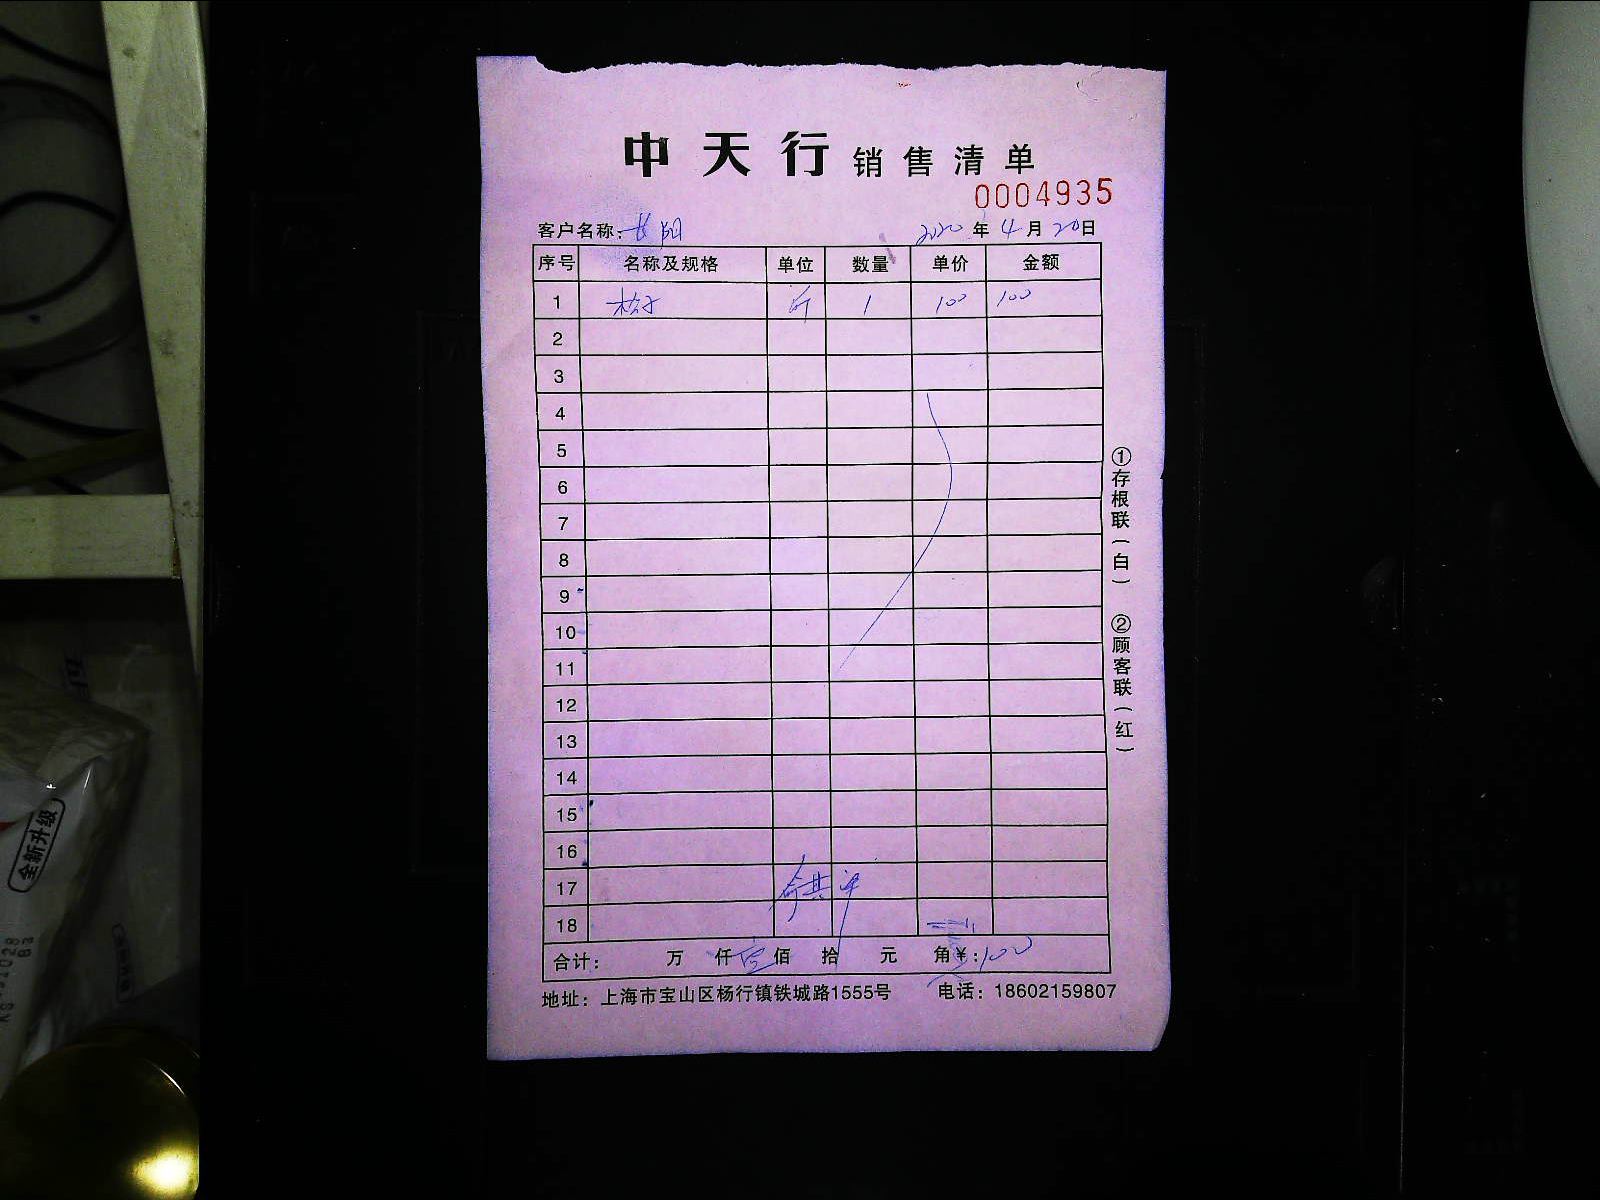 中天行 销售清单
0004935
客户名称：长阳 2020年4月20日
序号 名称及规格 单位 数量 单价 金额
1 松子 斤 1 100 100
2
3
4
5
6
7
8
9
10
11
12
13
14
15
16
17
18
合计： 万 仟 壹佰 拾 元 角 ¥：100
地址：上海市宝山区杨行镇铁城路1555号 电话：18602159807
①存根联（白） ②顾客联（红）
全新升级